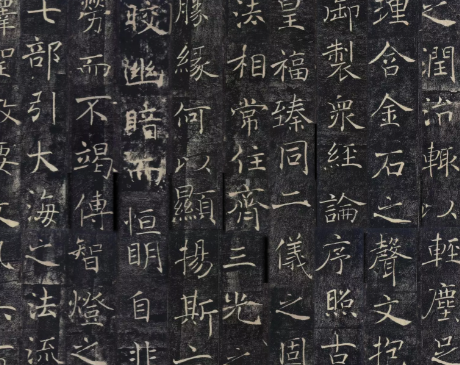 之潤治輒以輕塵足
理含金石之聲文抱
御製衆經論序照古
皇福臻同二儀之固
法相常住齊三光之
勝緣何以顯揚斯
皎幽暗而恒明自非
勞而不竭傳智燈之
七部引大海之法流
譯聖教要文凡六百